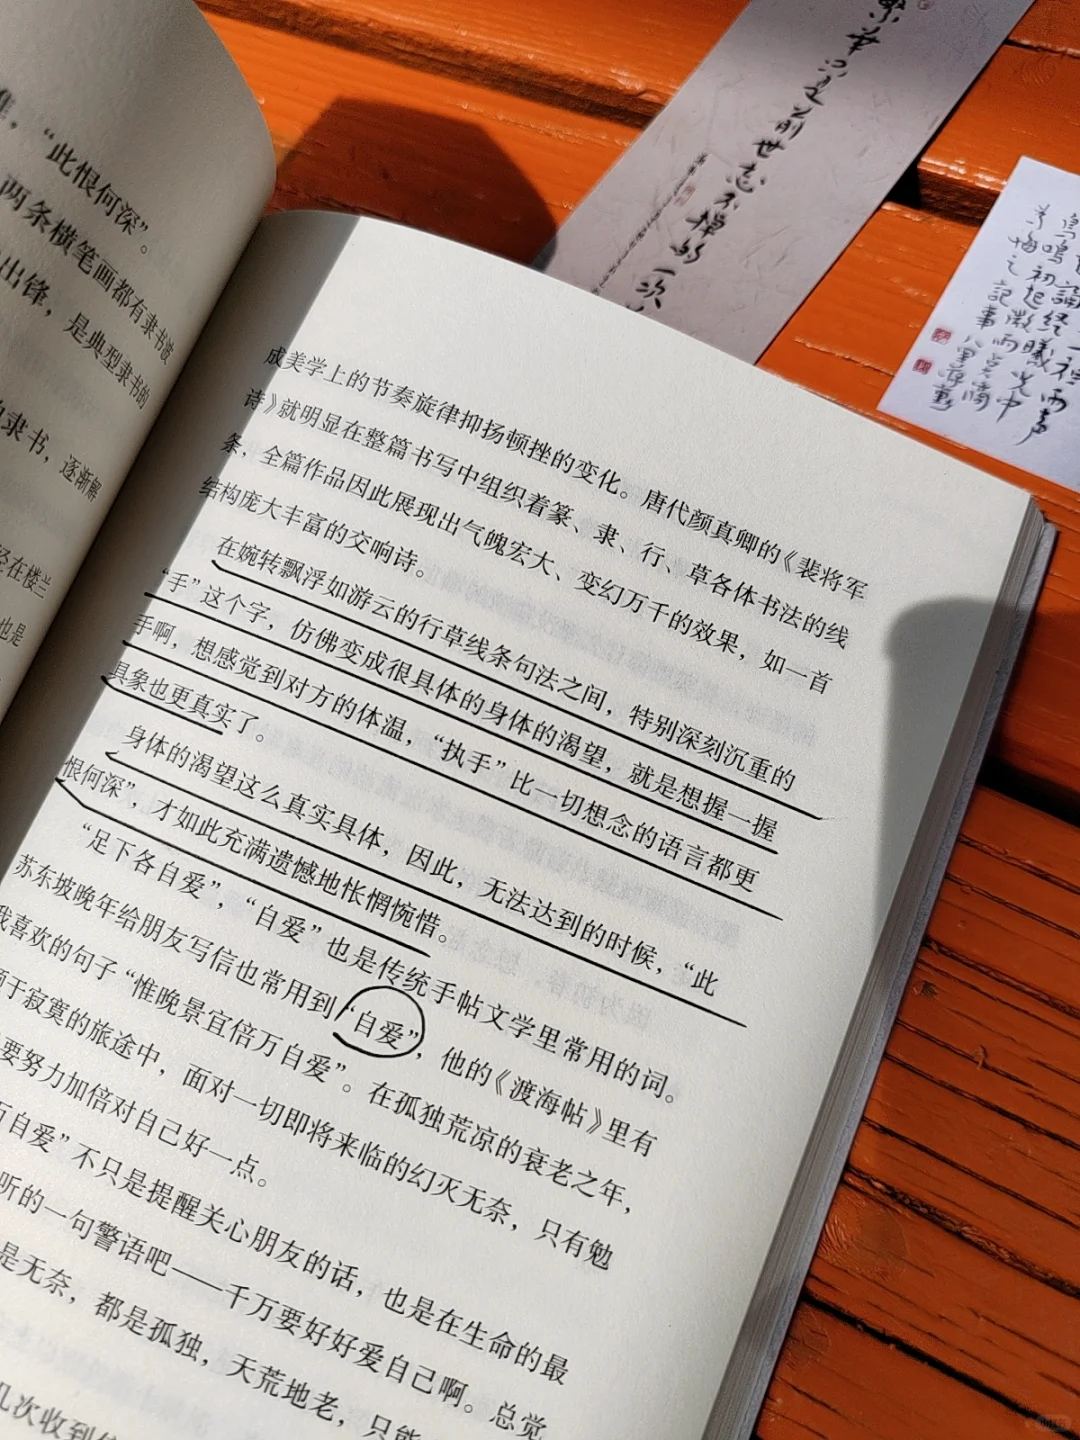 ，“此恨何深”。
两条横笔画都有隶书波
出锋，是典型隶书的
隶书，逐渐解
在楼兰
也是
成美学上的节奏旋律抑扬顿挫的变化。唐代颜真卿的《裴将军
诗》就明显在整篇书写中组织着篆、隶、行、草各体书法的线
条，全篇作品因此展现出气魄宏大、变幻万千的效果，如一首
结构庞大丰富的交响诗。
在婉转飘浮如游云的行草线条句法之间，特别深刻沉重的
“手”这个字，仿佛变成很具体的身体的渴望，就是想握一握
手啊，想感觉到对方的体温，“执手”比一切想念的语言都更
具象也更真实了。
身体的渴望这么真实具体，因此，无法达到的时候，“此
恨何深”，才如此充满遗憾地怅惘惋惜。
“足下各自爱”，“自爱”也是传统手帖文学里常用的词。
苏东坡晚年给朋友写信也常用到“自爱”，他的《渡海帖》里有
我喜欢的句子“惟晚景宜倍万自爱”。在孤独荒凉的衰老之年，
于寂寞的旅途中，面对一切即将来临的幻灭无奈，只有勉
要努力加倍对自己好一点。
万自爱”不只是提醒关心朋友的话，也是在生命的最
听的一句警语吧——千万要好好爱自己啊。总觉
是无奈，都是孤独，天荒地老，只能
几次收到
繁华只是前世忘不掉的一次